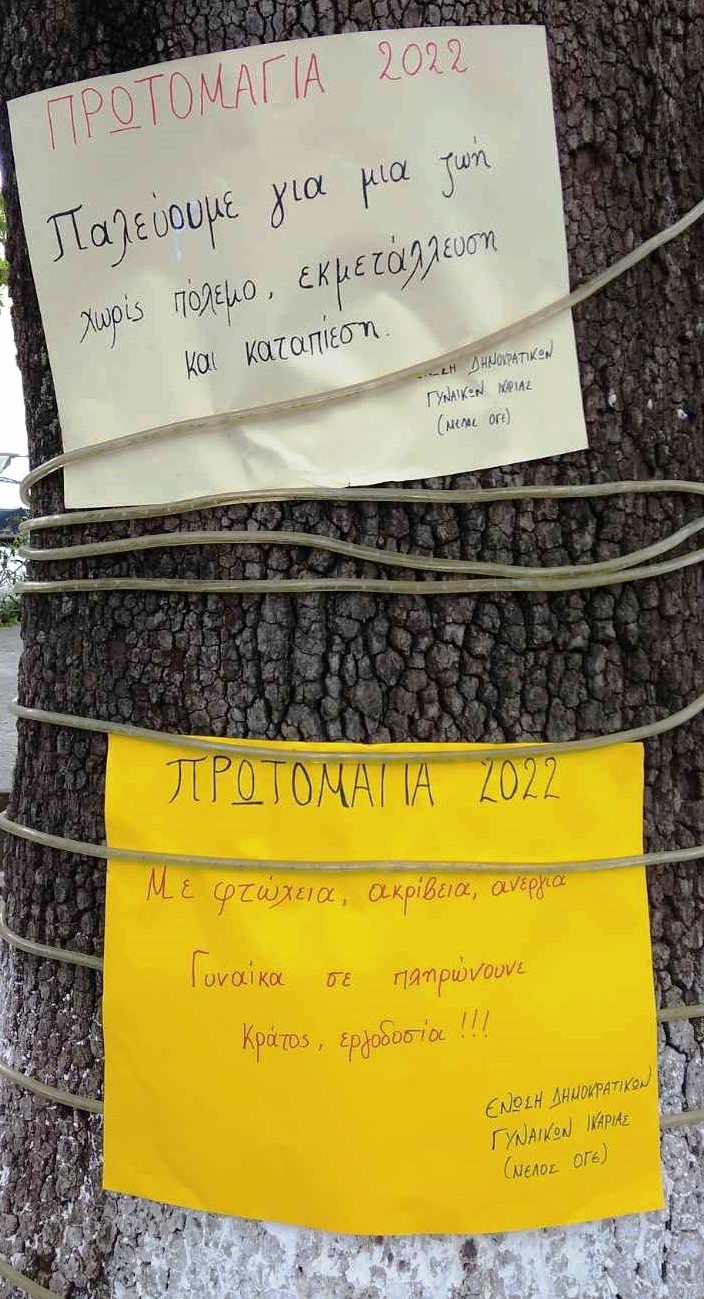 ΠΡΩΤΟΜΑΓΙΑ 2022
Παλεύουμε για μια ζωή
χωρίς πόλεμο, εκμετάλλευση
και καταπίεση.
ΕΝΩΣΗ ΔΗΜΟΚΡΑΤΙΚΩΝ
ΓΥΝΑΙΚΩΝ ΙΚΑΡΙΑΣ
(ΜΕΛΟΣ ΟΓΕ)
ΠΡΩΤΟΜΑΓΙΑ 2022
Με φτώχεια, ακρίβεια, ανεργια
Γυναίκα σε πληρώνουνε
Κράτος, εργοδοσία !!!
ΕΝΩΣΗ ΔΗΜΟΚΡΑΤΙΚΩΝ
ΓΥΝΑΙΚΩΝ ΙΚΑΡΙΑΣ
(ΜΕΛΟΣ ΟΓΕ)